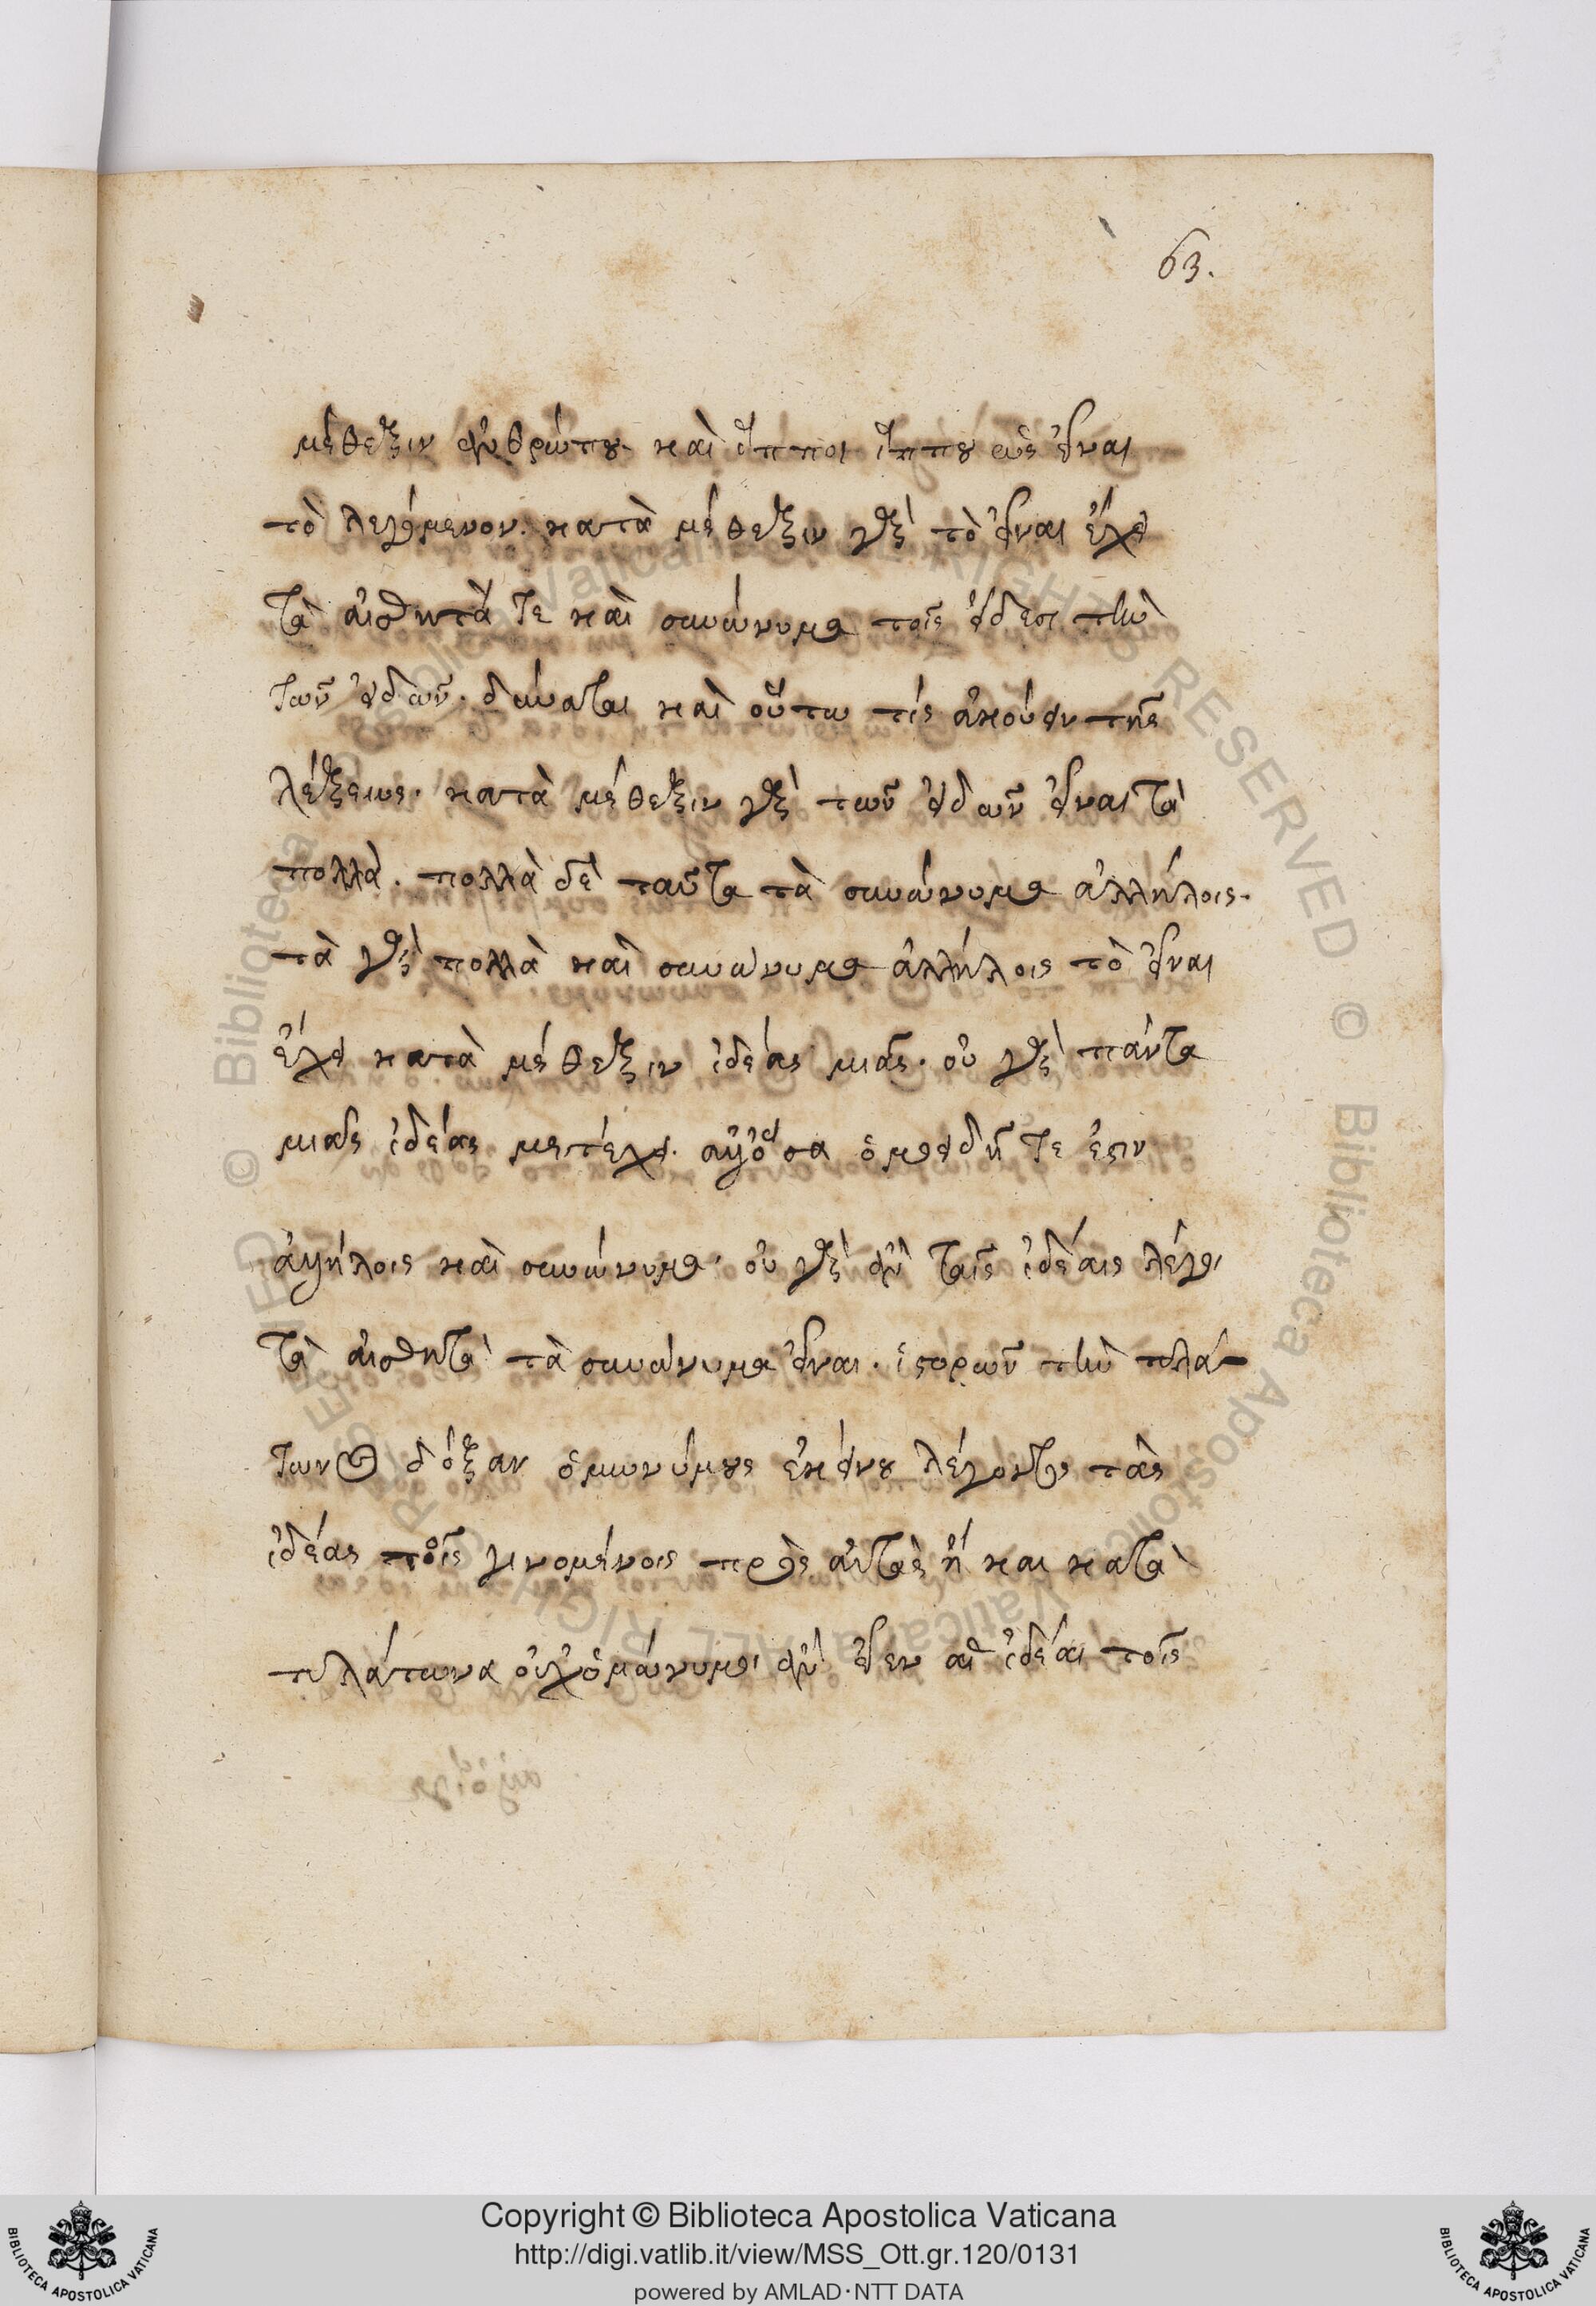 63.
μέθεξιν ἀνθρώπου. καὶ ἵπποι ἵππου ὡς εἶναι
τὸ λεγόμενον. κατὰ μέθεξιν γὰρ τὸ εἶναι ἔχει
τὰ αἰσθητά τε καὶ συνώνυμα τοῖς εἴδεσι τὴν
τῶν εἰδῶν. δύναται καὶ οὕτω τίς ἀκούειν τῆς
λέξεως. κατὰ μέθεξιν γὰρ τῶν εἰδῶν εἶναι τὰ
πολλὰ. πολλὰ δὲ ταῦτα τὰ συνώνυμα ἀλλήλοις.
τὰ γὰρ πολλὰ καὶ συνώνυμα ἀλλήλοις τὸ εἶναι
ἔχει κατὰ μέθεξιν ἰδέας μιᾶς. οὐ γὰρ πάντα
μιᾶς ἰδέας μετέχει. ἀλλ' ὅσα ὁμοειδῆ τε ἐστιν
ἀλλήλοις καὶ συνώνυμα. οὐ γὰρ ἐν ταῖς ἰδέαις λέγει
τὰ αἰσθητὰ τὰ συνώνυμα εἶναι. ἱστορῶν τὴν πλά-
τωνος δόξαν ὁμωνύμους ἐκείνου λέγοντος τὰς
ἰδέας τοῖς γινομένοις πρὸς αὐτὰς ἢ και κατὰ
πλάτωνα οὐχ ὁμώνυμοι ἐν οὐδεν αἱ ἰδέαι τοῖς
Copyright © Biblioteca Apostolica Vaticana
http://digi.vatlib.it/view/MSS_Ott.gr.120/0131
powered by AMLAD·NTT DATA